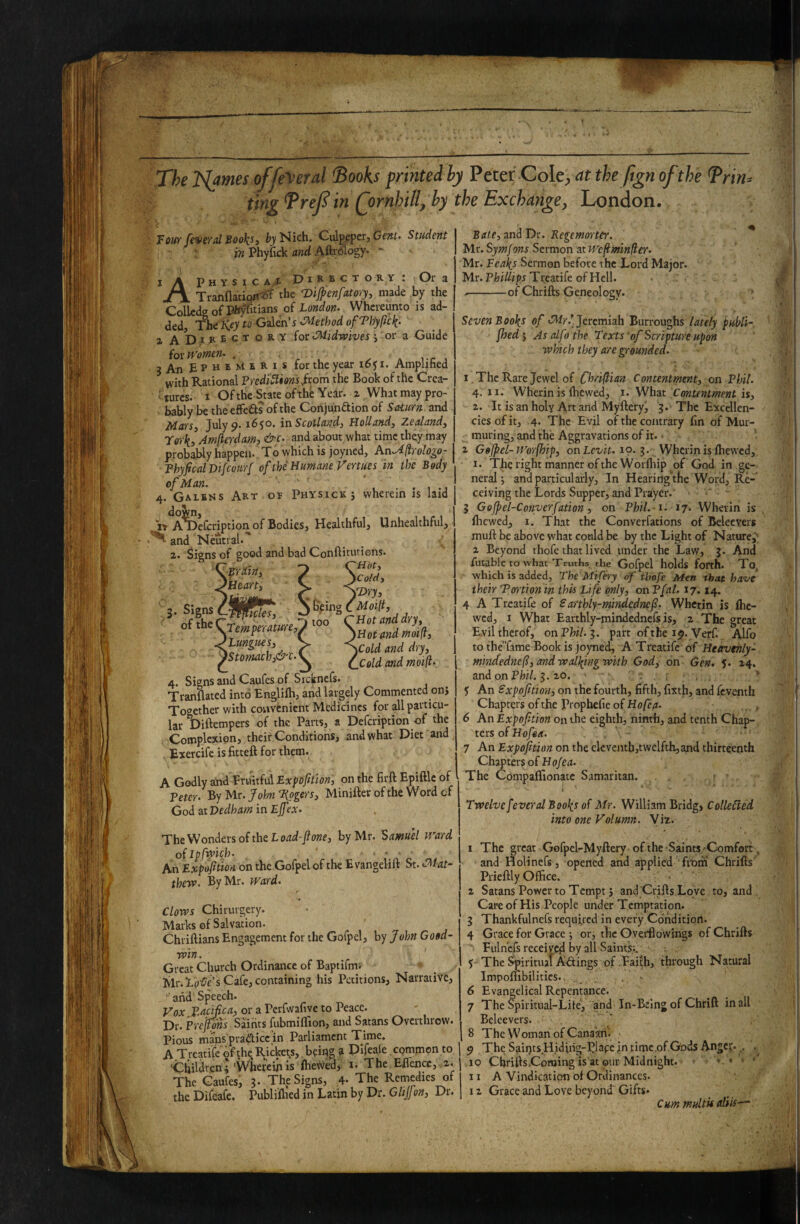 The Names of several Books printed by Peter Cole, at the sign of the Prin-
ting Press in Cornhill, by the Exchange, London.
Four several Books, by Nich. Culpeper, Gent. Student
in Physick and Astrology.
1 A Physical Directory: Or a
Translation of the Dispensatory, made by the
Colledg of Physitians of London. Whereunto is ad-
ded, The Key to Galen's Method of Physick.
2 A Directory for Midwives; or a Guide
for Women.
3 An Ephemeris for the year 1651. Amplified
with Rational Predictions from the Book of the Crea-
tures. 1 Of the State of the Year. 2 What may pro-
bably be the effects of the Conjunction of Saturn and
Mars, July 9. 1650. in Scotland, Holland, Zealand,
York, Amsterdam, &c. and about what time they may
probably happen. To which is joyned, An Astrologo-
Physical Discours of the Humane Vertues in the Body
of Man.
4. Galens Art of Physick; wherein is laid
down,
1 A Description of Bodies, Healthful, Unhealthful,
and Neutral.
2. Signs of good and bad Constitutions.
3. Signs of the
Brain,
Heart,
Testicles,
Temperature,
Lungues,
Stomach, &c.
being too
Hot,
Cold,
Dry,
Moist,
Hot and dry,
Hot and moist,
Cold and dry,
Cold and moist.
4. Signs and Causes of Sickness.
Translated into English, and largely Commented on;
Together with convenient Medicines for all particu-
lar Distempers of the Parts, a Description of the
Complexion, their Conditions, and what Diet and
Exercise is fittest for them.
A Godly and Fruitful Exposition, on the first Epistle of
Peter. By Mr. John Rogers, Minister of the Word of
God at Dedham in Essex.
The Wonders of the Load-stone, by Mr. Samuel Ward
of Ipswich.
An Exposition on the Gospel of the Evangelist St. Mat-
thew. By Mr. Ward.
Clows Chirurgery.
Marks of Salvation.
Christians Engagement for the Gospel, by John Good-
win.
Great Church Ordinance of Baptism.
Mr. Love's Case, containing his Petitions, Narrative,
and Speech.
Vox Pacifica, or a Perswasive to Peace.
Dr. Prestons Saints submission, and Satans Overthrow.
Pious mans practice in Parliament Time.
A Treatise of the Rickets, being a Disease common to
Children; Wherein is shewed, 1. The Essence, 2.
The Causes, 3. The Signs, 4. The Remedies of
the Disease. Published in Latin by Dr. Glisson, Dr.
Bate, and Dr. Regemorter.
Mr. Symsons Sermon at Westminster.
Mr. Feaks Sermon before the Lord Major.
Mr. Phillips Treatise of Hell.
——of Christs Geneology.
Seven Books of Mr. Jeremiah Burroughs lately publi-
shed; As also the Texts of Scripture upon
which they are grounded.
1 The Rare Jewel of Christian Contentment, on Phil.
4. 11. Wherin is shewed, 1. What Contentment is,
2. It is an holy Art and Mystery, 3. The Excellen-
cies of it, 4. The Evil of the contrary sin of Mur-
muring, and the Aggravations of it.
2 Gospel-Worship, on Levit. 10. 3. Wherin is shewed,
1. The right manner of the Worship of God in ge-
neral; and particularly, In Hearing the Word, Re-
ceiving the Lords Supper, and Prayer.
3 Gospel-Conversation, on Phil. 1. 17. Wherin is
shewed, 1. That the Conversations of Beleevers
must be above what could be by the Light of Nature,
2 Beyond those that lived under the Law, 3. And
sutable to what Truths the Gospel holds forth. To
which is added, The Misery of those Men that have
their Portion in this Life only, on Psal. 17. 14.
4 A Treatise of Earthly-mindedness. Wherin is she-
wed, 1 What Earthly-mindedness is, 2 The great
Evil therof, on Phil. 3. part of the 19. Vers. Also
to the same Book is joyned, A Treatise of Heavenly-
mindedness, and walking with God, on Gen. 5. 24.
and on Phil. 3. 20.
5 An Exposition, on the fourth, fifth, sixth, and seventh
Chapters of the Prophesie of Hosea.
6 An Exposition on the eighth, ninth, and tenth Chap-
ters of Hosea.
7 An Exposition on the eleventh, twelfth, and thirteenth
Chapters of Hosea.
The Compassionate Samaritan.
Twelve several Books of Mr. William Bridg, Collected
into one Volumn. Viz.
1 The great Gospel-Mystery of the Saints Comfort
and Holiness, opened and applied from Christs
Priestly Office.
2 Satans Power to Tempt; and Crists Love to, and
Care of His People under Temptation.
3 Thankfulness required in every Condition.
4 Grace for Grace; or, the Overflowings of Christs
Fulness received by all Saints.
5 The Spiritual Actings of Faith, through Natural
Impossibilities.
6 Evangelical Repentance.
7 The Spiritual-Life, and In-Being of Christ in all
Beleevers.
8 The Woman of Canaan.
9 The Saints Hiding-Place in time of Gods Anger.
10 Christs Coming is at our Midnight.
11 A Vindication of Ordinances.
12 Grace and Love beyond Gifts.
Cum multis aliis—